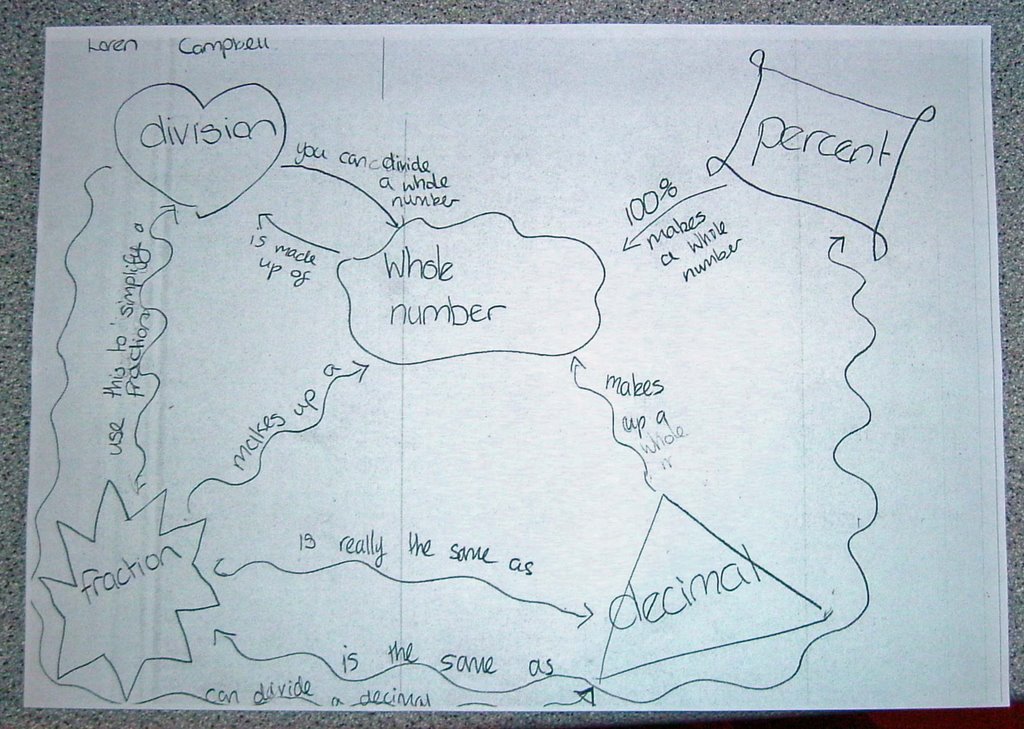 Loren Campbell
division
percent
you can divide
a whole
number
100%
makes
a whole
number
is made
up of
Whole
number
use this to simplify a
fraction
makes up a
makes
up a
whole
n
is really the same as
fraction
decimal
is the same as
can divide a decimal